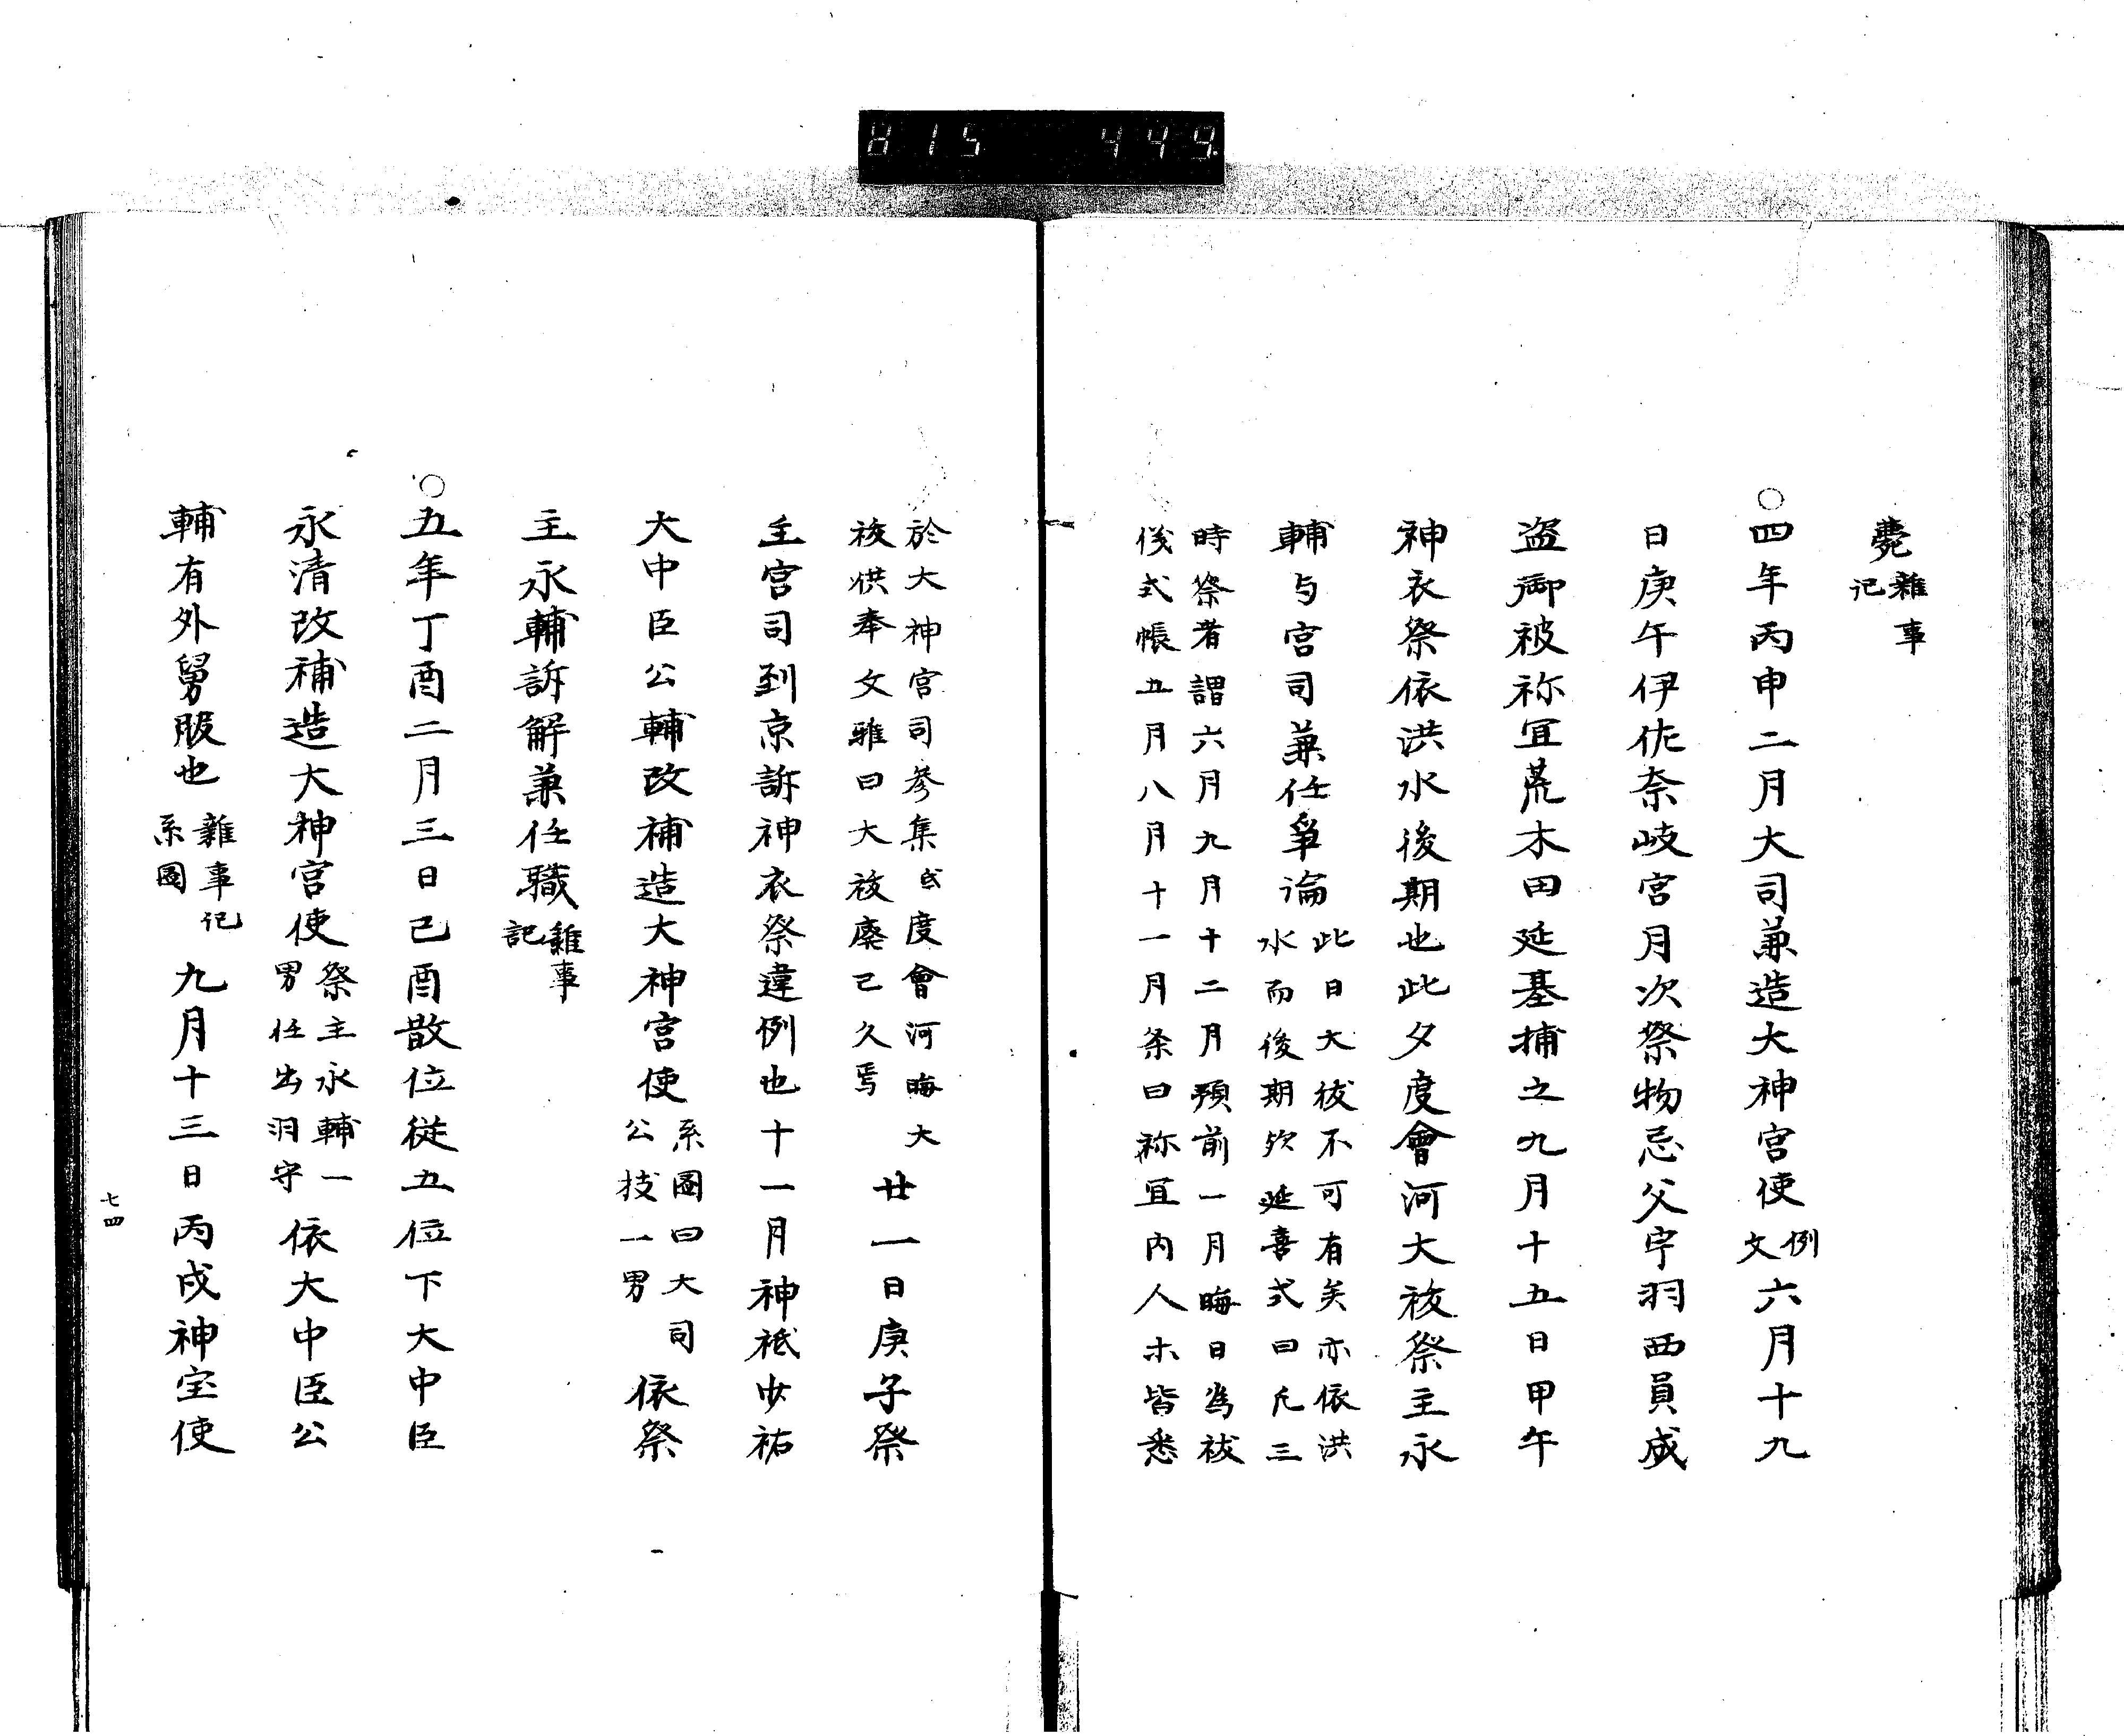 815 449
薨雜事記
○四年丙申二月大司兼造大神宮使例文六月十九
日庚午伊佐奈岐宮月次祭物忌父宇羽西員成
盗御被祢冝荒木田延基捕之九月十五日甲午
神衣祭依洪水後期也此夕度會河大祓祭主永
輔与宮司兼任爭論此日大祓不可有矣亦依洪
水而後期欤延喜式曰凡三
時祭者謂六月九月十二月預前一月晦日爲祓
儀式帳五月八月十一月条曰祢冝内人木皆悉
於大神宮司参集弖度會河晦大
祓供奉文雅曰大祓廃已久焉廿一日庚子祭
主宮司到京訴神衣祭違例也十一月神祇少祐
大中臣公輔改補造大神宮使系圖曰大司
公技一男依祭
主永輔訴解兼任職雜事記
○五年丁酉二月三日己酉散位従五位下大中臣
永清改補造大神宮使祭主永輔一
男任出羽守依大中臣公
輔有外舅服也雜事記
系圖九月十三日丙戌神宝使
七四